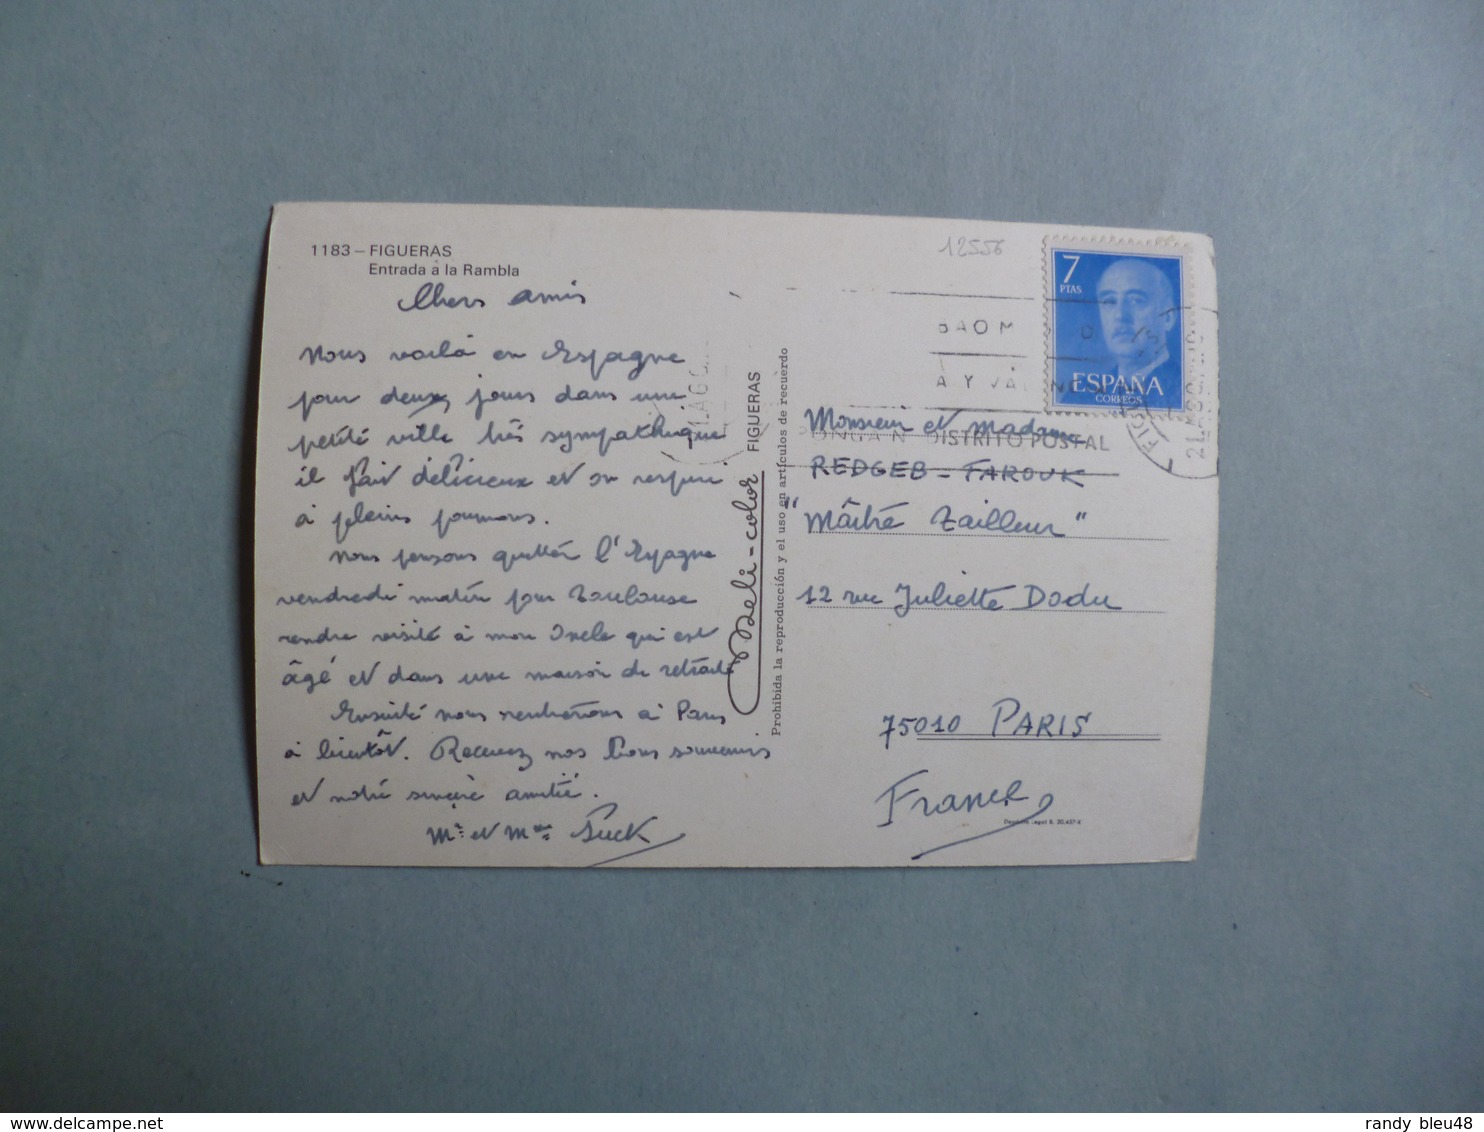 1183 – FIGUERAS
Entrada a la Rambla
Chers amis
Nous voilà en Espagne
pour deux jours dans une
petite ville très sympathique
il fait délicieux et on respire
à pleins poumons.
Nous pensons quitter l'Espagne
vendredi matin pour Toulouse
rendre visite à mon Oncle qui est
âgé et dans une maison de retraite
Ensuite nous rentrerons à Paris
à bientôt. Recevez nos bons souvenirs
et notre sincère amitié.
Mr et Mme
Deli-color FIGUERAS
Prohibida la reproducción y el uso en artículos de recuerdo
12556
7
PTAS
ESPAÑA
CORREOS
PONGA Nº DISTRITO POSTAL
Monsieur et madame
REDGEB - FAROUK
"Maître Tailleur"
12 rue Juliette Dodu
75010 PARIS
France
delcampe.net
randy bleu48